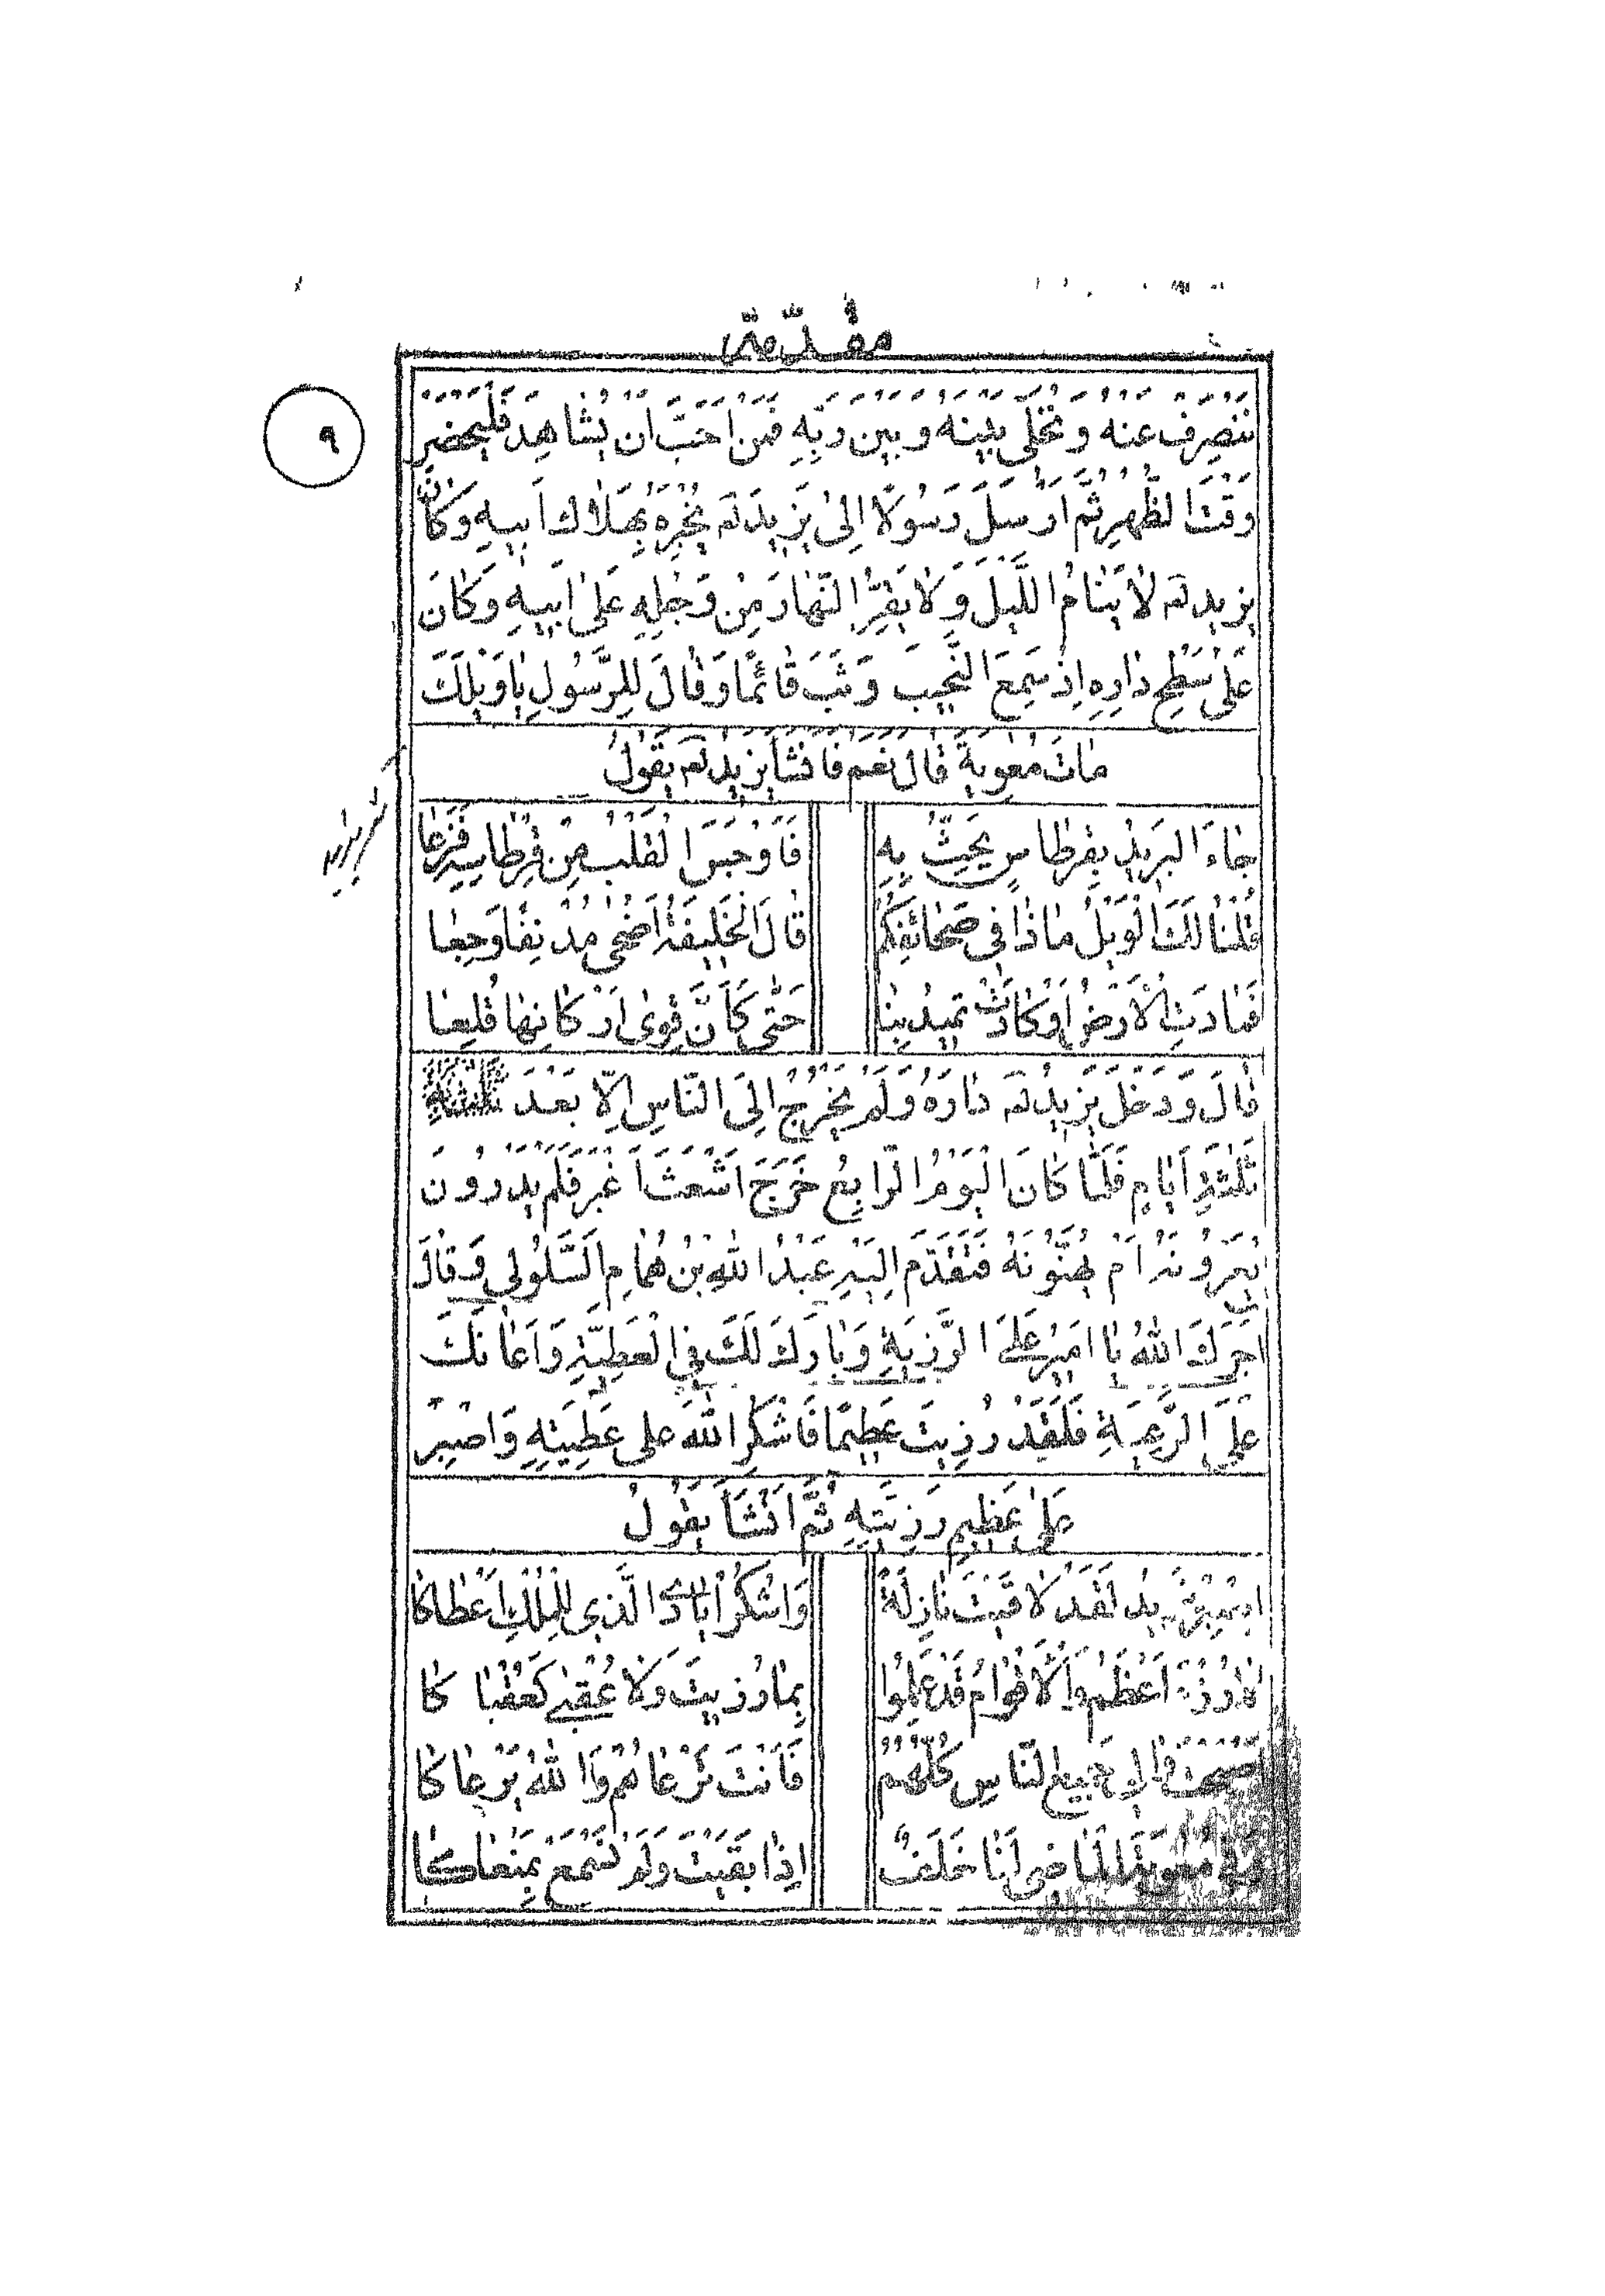 مقدّمة
٩
نَنْصَرِفُ عَنْهُ وَنُخَلِّي بَيْنَهُ وَبَيْنَ رَبِّهِ فَمَنْ اَحَبَّ اَنْ يُشَاهِدَ فَلْيَحْضُرْ
وَقْتَ الظُّهْرِ ثُمَّ اَرْسَلَ رَسُولًا اِلىٰ يَزِيدَ لَم يُخْبِرُهُ بِهَلَاكِ اَبِيهِ وَكَانَ
يَزيد لَم لَا يَنَامُ اللَّيْلَ وَلَا يَقِرُّ النَّهَارَ مِنْ وَجَلِهِ عَلىٰ اَبِيهِ وَكَانَ
عَلىٰ سَطْحِ دَارِهِ اِذْ سَمِعَ النَّحِيبَ وَثَبَ قَائِمًا وَقَالَ لِلرَّسُولِ يَا وَيْلَكَ
مَاتَ مُعٰوِيَةُ قَالَ نَعَم فَانْشَأَ يَزيد لَم يَقُولُ
جَاءَ الْبَرِيدُ بِقِرْطَاسٍ يَحُثُّ بِهِ
فَاَوْجَسَ الْقَلْبُ مِنْ قِرْطَاسِهِ فَزَعَا
قُلْنَا لَكَ الْوَيْلُ مَاذَا فِي صَحَائِفِكُمْ
قَالَ الْخَلِيفَةُ اَضْحٰى مُدْنِفًا وَجِعَا
فَمَادَتِ الْاَرْضُ اَوْ كَادَتْ تَمِيدُ بِنَا
حَتّٰى كَاَنَّ قُوٰى اَرْكَانِهَا قُلِعَا
قَالَ وَدَخَلَ يَزِيدُ لَم دَارَهُ وَلَمْ يَخْرُجْ اِلَى النَّاسِ اِلَّا بَعْدَ
ثَلٰثَةِ اَيَّامٍ فَلَمَّا كَانَ الْيَوْمُ الرَّابِعُ خَرَجَ اَشْعَثَ اَغْبَرَ فَلَمْ يَدْرُونَ
يُعَزُّونَهُ اَمْ يُهَنُّونَهُ فَتَقَدَّمَ اِلَيْهِ عَبْدُ اللهِ بْنُ هُمَامِ السَّلُولِي وَقَالَ
اٰجَرَكَ اللهُ يَا اَمِيرُ عَلَى الرَّزِيَةِ وَبَارَكَ لَكَ فِي الْعَطِيَّةِ وَاَعَانَكَ
عَلَى الرَّعِيَةِ فَلَقَدْ رُزِيتَ عَظِيمًا فَاشْكُرِ اللهَ عَلٰى عَطِيَتِهِ وَاصْبِرْ
عَلىٰ عَظِيمِ رَزِيَّتِهِ ثُمَّ اَنْشَأَ يَقُولُ
اِصْبِرْ يَزِيدُ لَقَدْ لَاقَيْتَ نَازِلَةً
وَاشْكُرْ اَيَادِي الَّذِي لِلْمُلْكِ اَعْطَاكَا
لَا رُزْءَ اَعْظَمُ وَالْاَقْوَامُ قَدْ عَلِمُوا
بِمَا رُزِيتَ وَلَا عُقْبٰى كَعُقْبَاكَا
اَصْبَحْتَ وَالِي جَمِيعِ النَّاسِ كُلِّهِمُ
فَاَنْتَ تَرْعَاهُمُ وَاللهُ يَرْعَاكَا
وَفِي مُعٰوِيَةَ الْمَاضِي لَنَا خَلَفٌ
اِذَا بَقِيتَ وَلَمْ نَسْمَعْ بِمَنْعَاكَا